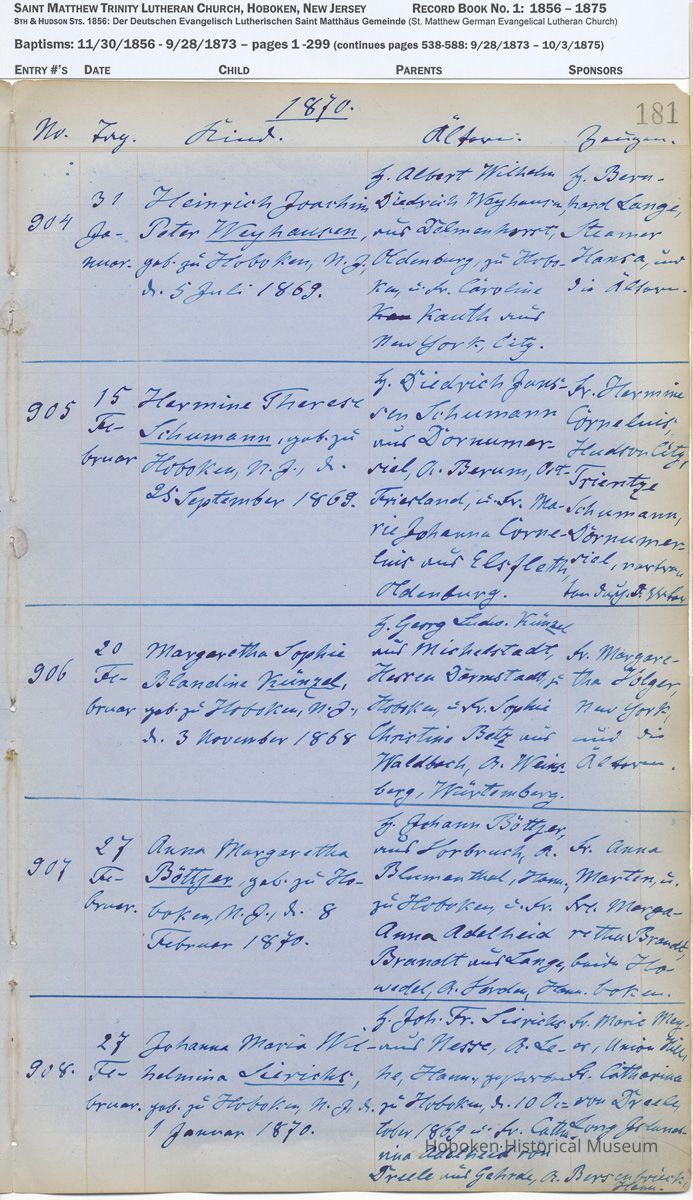 SAINT MATTHEW TRINITY LUTHERAN CHURCH, HOBOKEN, NEW JERSEY RECORD BOOK NO. 1: 1856 – 1875
8TH & HUDSON STS. 1856: Der Deutschen Evangelisch Lutherischen Saint Matthäus Gemeinde (St. Matthew German Evangelical Lutheran Church)
Baptisms: 11/30/1856 - 9/28/1873 – pages 1 -299 (continues pages 538-588: 9/28/1873 – 10/3/1875)
ENTRY #'S DATE CHILD PARENTS SPONSORS
1870.
181
No. Tag. Kind. Ältern. Zeugen.
904
31
Ja-
nuar.
Heinrich Joachim
Peter Weyhausen,
geb. zu Hoboken, N. J.,
d. 5 Juli 1869.
H. Albert Wilhelm
Diedrich Weyhausen,
aus Delmenhorst,
Oldenburg, zu Hobo-
ken, u. Fr. Caroline
Kauth aus
New York, City.
H. Bern-
hard Lange,
Steamer
Hansa, und
die Ältern.
905
15
Fe-
bruar
Hermine Therese
Schumann, geb. zu
Hoboken, N. J., d.
25 September 1869.
H. Diedrich Jans-
sen Schumann
aus Dornumer-
siel, A. Berum, Ost-
Friesland, u. Fr. Ma-
rie Johanna Corne-
lius aus Elsfleth,
Oldenburg.
Fr. Hermine
Cornelius,
Hudson City,
Trientze
Schumann,
Dornumer-
siel, vertre-
ten durch
906
20
Fe-
bruar
Margaretha Sophie
Blandine Künzel,
geb. zu Hoboken, N. J.,
d. 3 November 1868
H. Georg Ludw. Künzel
aus Michelstadt,
Hessen Darmstadt, zu
Hoboken, u. Fr. Sophie
Christine Betz aus
Waldbach, A. Weins-
berg, Würtemberg.
Fr. Margare-
tha Holger,
New York,
und die
Ältern.
907
27
Fe-
bruar.
Anna Margaretha
Böttjer, geb. zu Ho-
boken, N. J., d. 8
Februar 1870.
H. Johann Böttjer,
aus Vorbruch, A.
Blumenthal, Hann.,
zu Hoboken, u. Fr.
Anna Adelheid
Brandt aus Lange,
wedel, A. Verden, Hann.
Fr. Anna
Marten, u.
Frl. Marga-
retha Brandt,
beide Ho-
boken.
908.
27
Fe-
bruar.
Johanna Maria Wil-
helmina Sierichs,
geb. zu Hoboken, N. J., d.
1 Januar 1870.
H. Joh. Fr. Sierichs
aus Nesse, A. Le-
he, Hann., gestorben
zu Hoboken, d. 10 Oc-
tober 1869 u. Fr. Catha-
rina Adelheid von
Dreele aus Gehrde, A. Bersenbrück,
Hann.
Fr. Marie Mey-
er, Union Hill,
Fr. Catharina
von Dreele,
Long Island
Hoboken Historical Museum